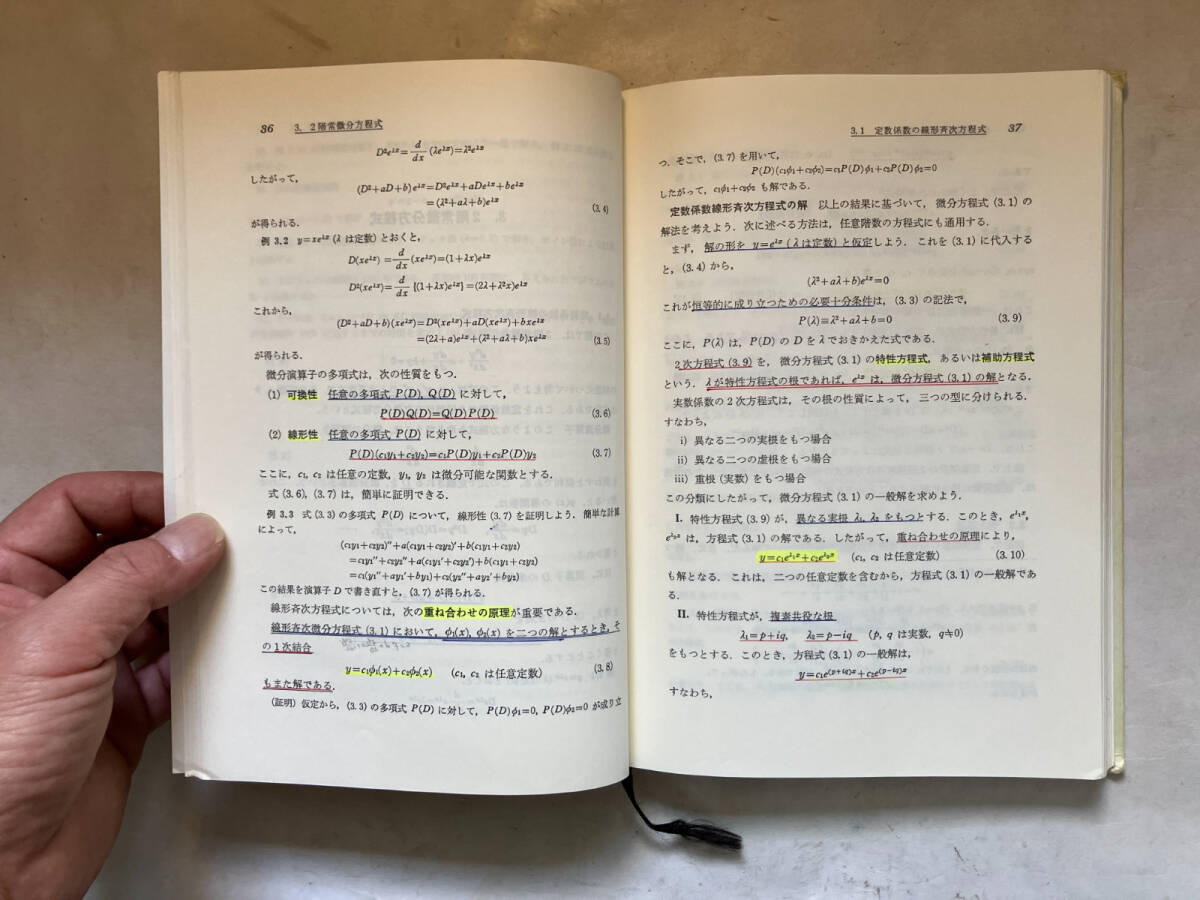 36 3. 2階常微分方程式
D²e^{λx}=d/dx(λe^{λx})=λ²e^{λx}
したがって,
(D²+aD+b)e^{λx}=D²e^{λx}+aDe^{λx}+be^{λx}
=(λ²+aλ+b)e^{λx} (3.4)
が得られる.
例 3.2 y=xe^{λx} (λ は定数) とおくと,
D(xe^{λx})=d/dx(xe^{λx})=(1+λx)e^{λx}
D²(xe^{λx})=d/dx{(1+λx)e^{λx}}=(2λ+λ²x)e^{λx}
これから,
(D²+aD+b)(xe^{λx})=D²(xe^{λx})+aD(xe^{λx})+bxe^{λx}
=(2λ+a)e^{λx}+(λ²+aλ+b)xe^{λx} (3.5)
が得られる.
微分演算子の多項式は, 次の性質をもつ.
(1) 可換性 任意の多項式 P(D), Q(D) に対して,
P(D)Q(D)=Q(D)P(D) (3.6)
(2) 線形性 任意の多項式 P(D) に対して,
P(D)(c₁y₁+c₂y₂)=c₁P(D)y₁+c₂P(D)y₂ (3.7)
ここに, c₁, c₂ は任意の定数, y₁, y₂ は微分可能な関数とする.
式 (3.6), (3.7) は, 簡単に証明できる.
例 3.3 式 (3.3) の多項式 P(D) について, 線形性 (3.7) を証明しよう. 簡単な計算
によって,
(c₁y₁+c₂y₂)''+a(c₁y₁+c₂y₂)'+b(c₁y₁+c₂y₂)
=c₁y₁''+c₂y₂''+a(c₁y₁'+c₂y₂')+b(c₁y₁+c₂y₂)
=c₁(y₁''+ay₁'+by₁)+c₂(y₂''+ay₂'+by₂)
この結果を演算子 D で書き直すと, (3.7) が得られる.
線形斉次方程式については, 次の重ね合わせの原理が重要である.
線形斉次微分方程式 (3.1) において, φ₁(x), φ₂(x) を二つの解とするとき, そ
の1次結合
y=c₁φ₁(x)+c₂φ₂(x) (c₁, c₂ は任意定数) (3.8)
もまた解である.
(証明) 仮定から, (3.3) の多項式 P(D) に対して, P(D)φ₁=0, P(D)φ₂=0 が成り立
3.1 定数係数の線形斉次方程式 37
つ. そこで, (3.7) を用いて,
P(D)(c₁φ₁+c₂φ₂)=c₁P(D)φ₁+c₂P(D)φ₂=0
したがって, c₁φ₁+c₂φ₂ も解である.
定数係数線形斉次方程式の解 以上の結果に基づいて, 微分方程式 (3.1) の
解法を考えよう. 次に述べる方法は, 任意階数の方程式にも通用する.
まず, 解の形を y=e^{λx} (λ は定数) と仮定しよう. これを (3.1) に代入する
と, (3.4) から,
(λ²+aλ+b)e^{λx}=0
これが恒等的に成り立つための必要十分条件は, (3.3) の記法で,
P(λ)≡λ²+aλ+b=0 (3.9)
ここに, P(λ) は, P(D) の D を λ でおきかえた式である.
2次方程式 (3.9) を, 微分方程式 (3.1) の特性方程式, あるいは補助方程式
という. λ が特性方程式の根であれば, e^{λx} は, 微分方程式 (3.1) の解となる.
実数係数の2次方程式は, その根の性質によって, 三つの型に分けられる.
すなわち,
i) 異なる二つの実根をもつ場合
ii) 異なる二つの虚根をもつ場合
iii) 重根 (実数) をもつ場合
この分類にしたがって, 微分方程式 (3.1) の一般解を求めよう.
I. 特性方程式 (3.9) が, 異なる実根 λ₁, λ₂ をもつとする. このとき, e^{λ₁x},
e^{λ₂x} は, 方程式 (3.1) の解である. したがって, 重ね合わせの原理により,
y=c₁e^{λ₁x}+c₂e^{λ₂x} (c₁, c₂ は任意定数) (3.10)
も解となる. これは, 二つの任意定数を含むから, 方程式 (3.1) の一般解であ
る.
II. 特性方程式が, 複素共役な根
λ₁=p+iq, λ₂=p−iq (p, q は実数, q≠0)
をもつとする. このとき, 方程式 (3.1) の一般解は,
y=c₁e^{(p+iq)x}+c₂e^{(p−iq)x}
すなわち,